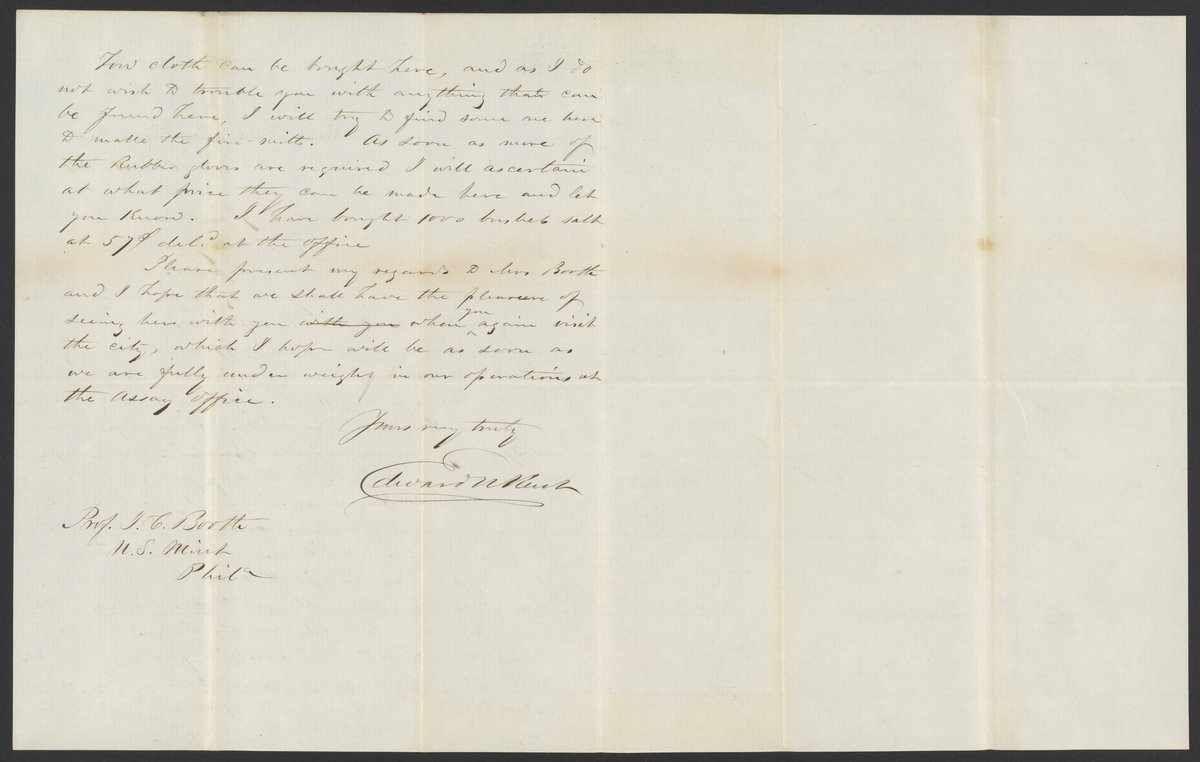 Tow cloth can be bought here, and as I do
not wish to trouble you with anything that can
be found here, I will try to find some one here
to make the fire-mitts. As soon as more of
the Rubber gloves are required I will ascertain
at what price they can be made here and let
you know. I have bought 1000 bushels salt
at 57¢ del.d at the office
Please present my regards to Mrs Booth
and I hope that we shall have the pleasure of
seeing her with you with you when you again visit
the city, which I hope will be as soon as
we are fully under weigh in our operations at
the Assay Office.
Yours very truly
Edward N Kent
Prof. J. C. Booth
U. S. Mint
Phila